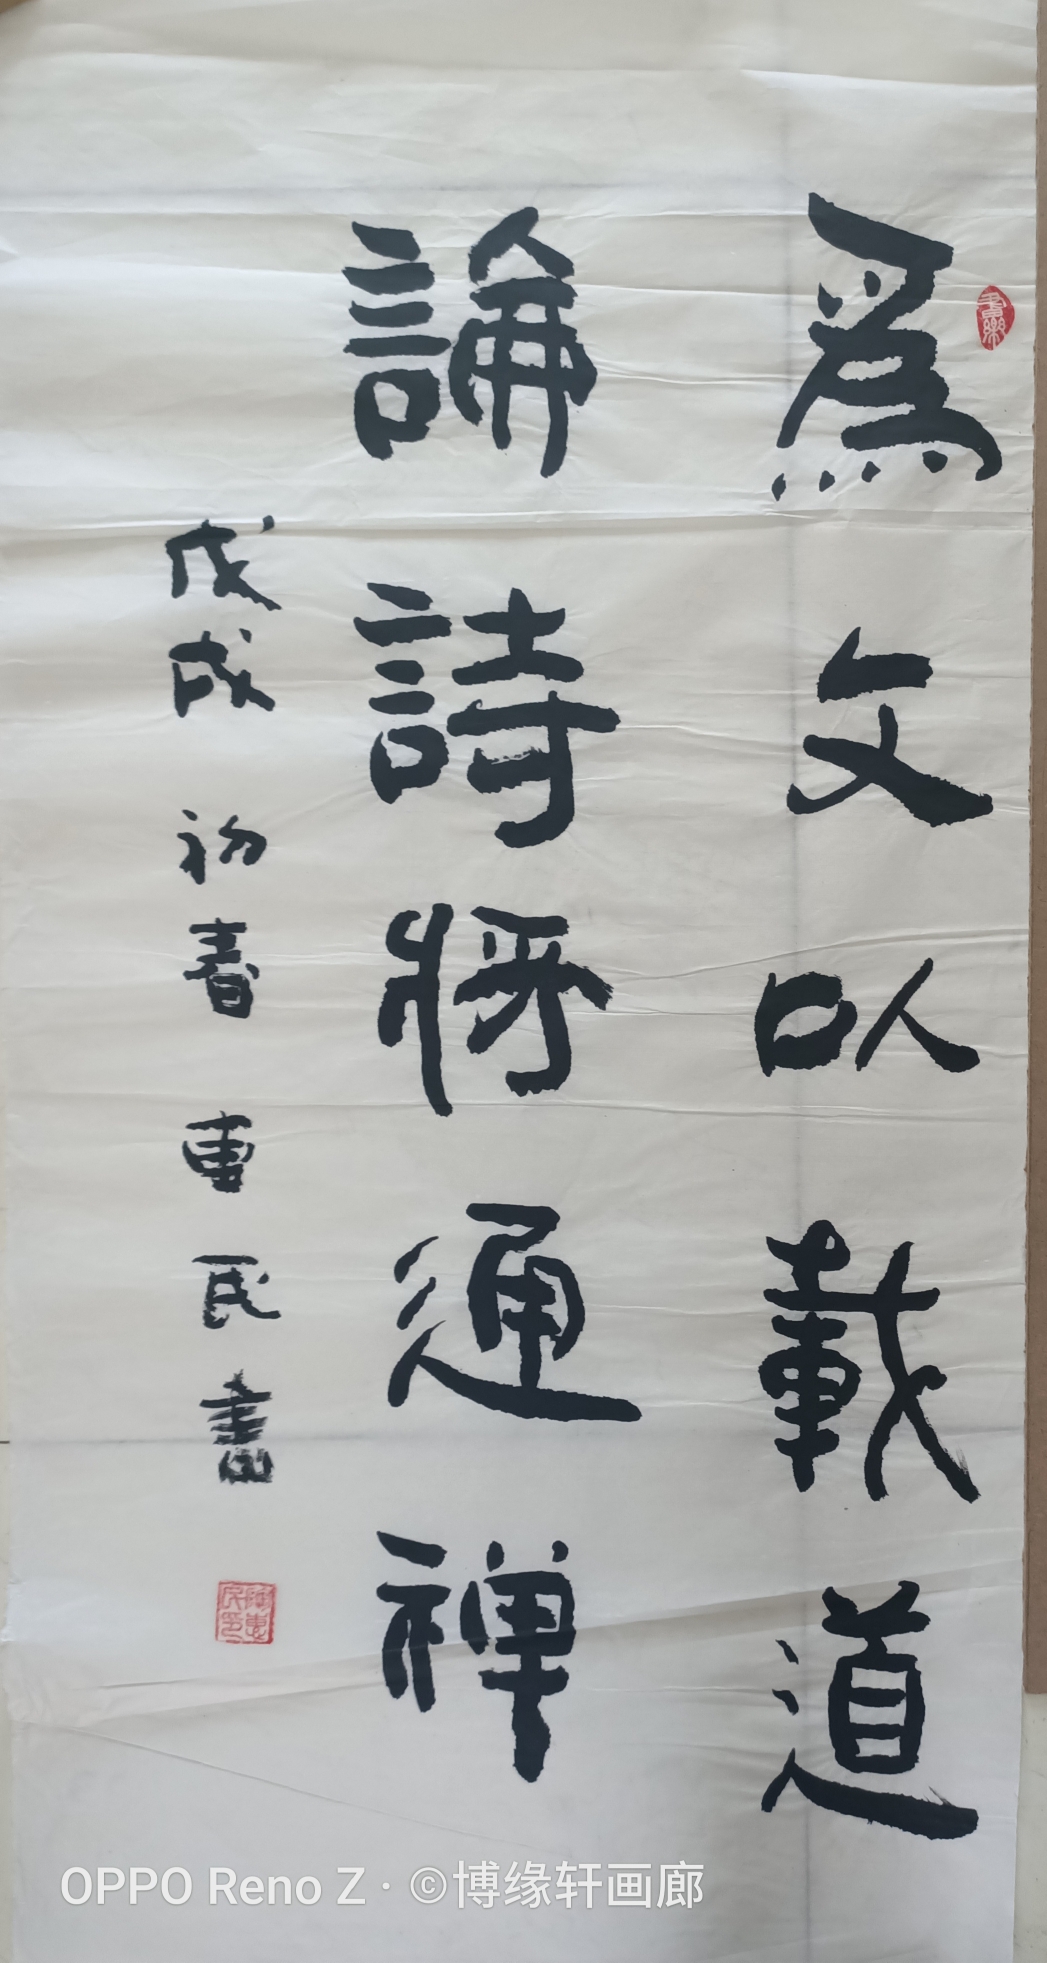 爲文以載道
論詩將通禪
戊戌初春 惠民書
OPPO Reno Z · ©博缘轩画廊